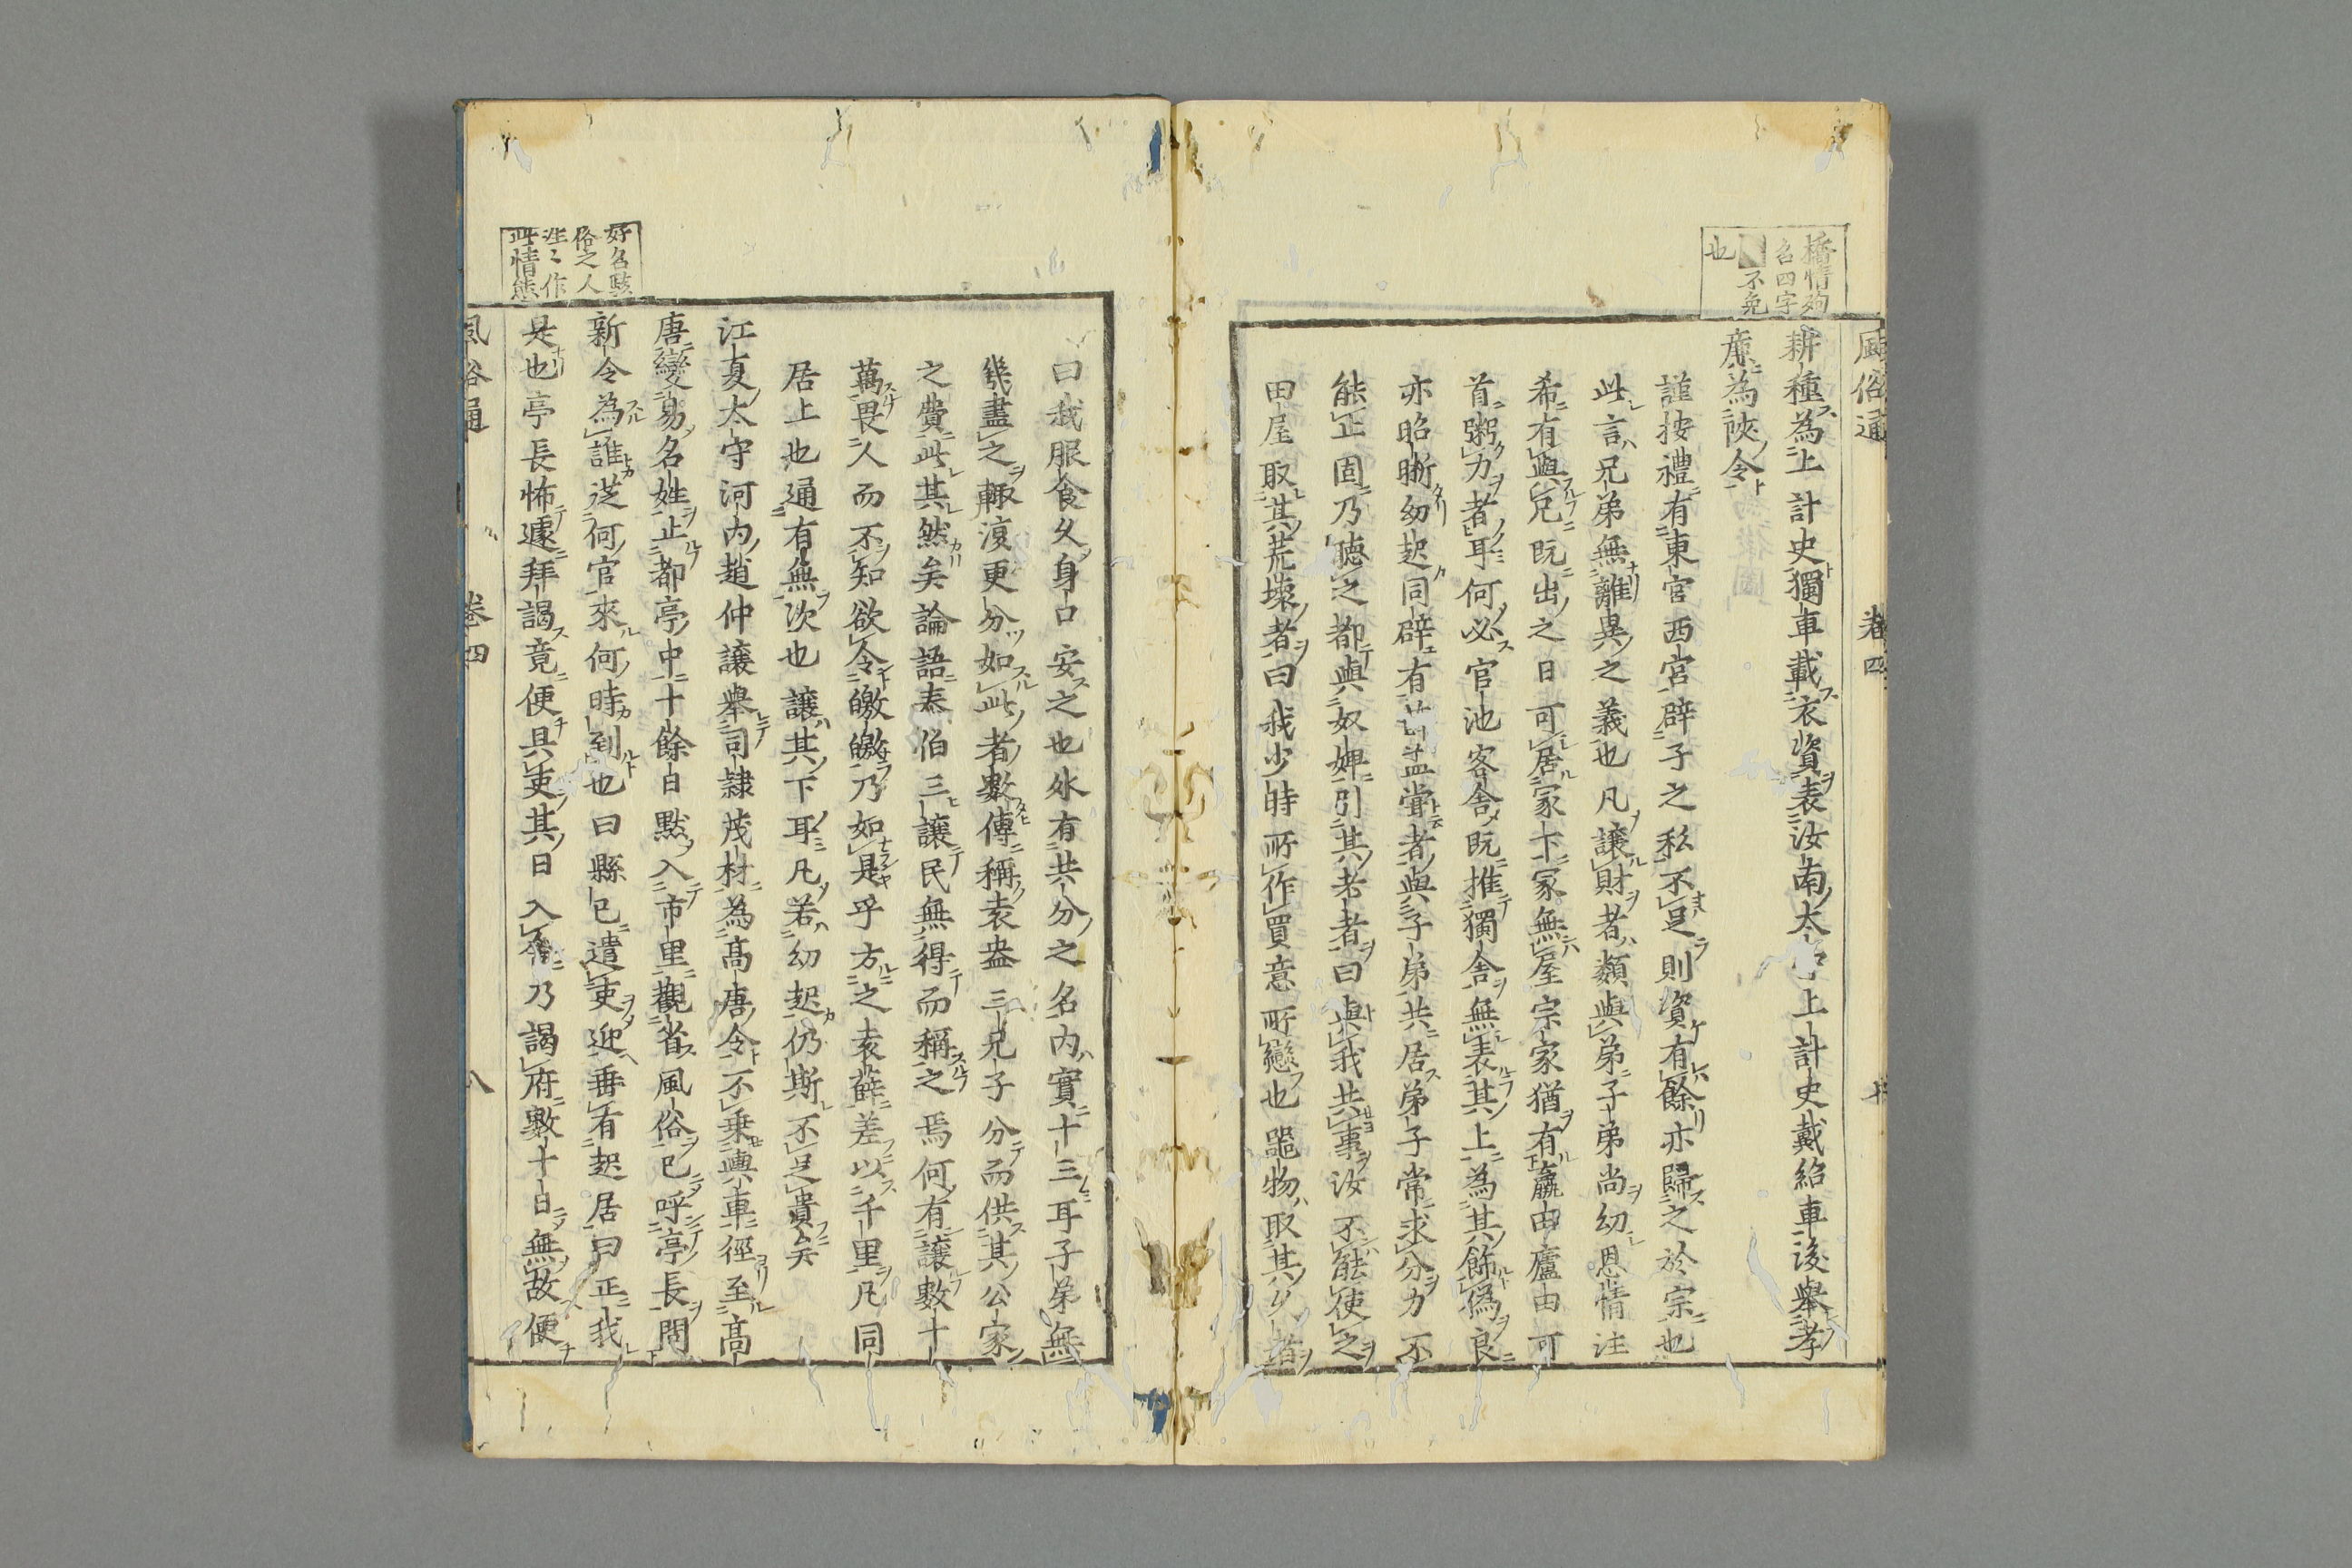 風俗通 卷四
矯情殉
名四字
不免
也
耕種為上計史獨車載衣資表汝南太守上計史戴紹車後舉孝
廉為陜令
謹按禮有東宮西宮辟子之私不足則資有餘亦歸之於宗也
此言兄弟無離異之義也凡讓財者類與弟子弟尚幼恩情注
希有與兄既出之日可居冢下冢無屋宗家猶有羸由廬由可
首粥力者耳何必官池客舍既推獨舍無表其上為其飾偽良
亦昭晰幼起同辟有薛孟嘗者與子弟共居弟子常求分力不
能止固乃聽之都與奴婢引其老者曰與我共事汝不能使之
田屋取其荒壞者曰我少時所作買意所戀也器物取其久者
曰我服食久身口安之也外有共分之名內實十三耳子弟無
幾盡之輒復更分如此者數傳稱袁盎三兄子分而供其公家
之費此其然矣論語泰伯三讓民無得而稱之焉何有讓數十
萬畏人而不知欲令皦皦乃如是乎方之袁薛差以千里凡同
居上也通有無次也讓其下耳凡若幼起仍斯不足貴矣
江夏太守河內趙仲讓舉司隸茂材為高唐令不乗輿車徑至高
唐變易名姓止都亭中十餘日默入市里觀省風俗已呼亭長問
新令為誰從何官來何時到也曰縣已遣吏迎垂有起居曰正我
是也亭長怖遽拜謁竟便具吏其日入舍乃謁府數十日無故便
好名駭
俗之人
往々作
此情態
風俗通 卷四 八